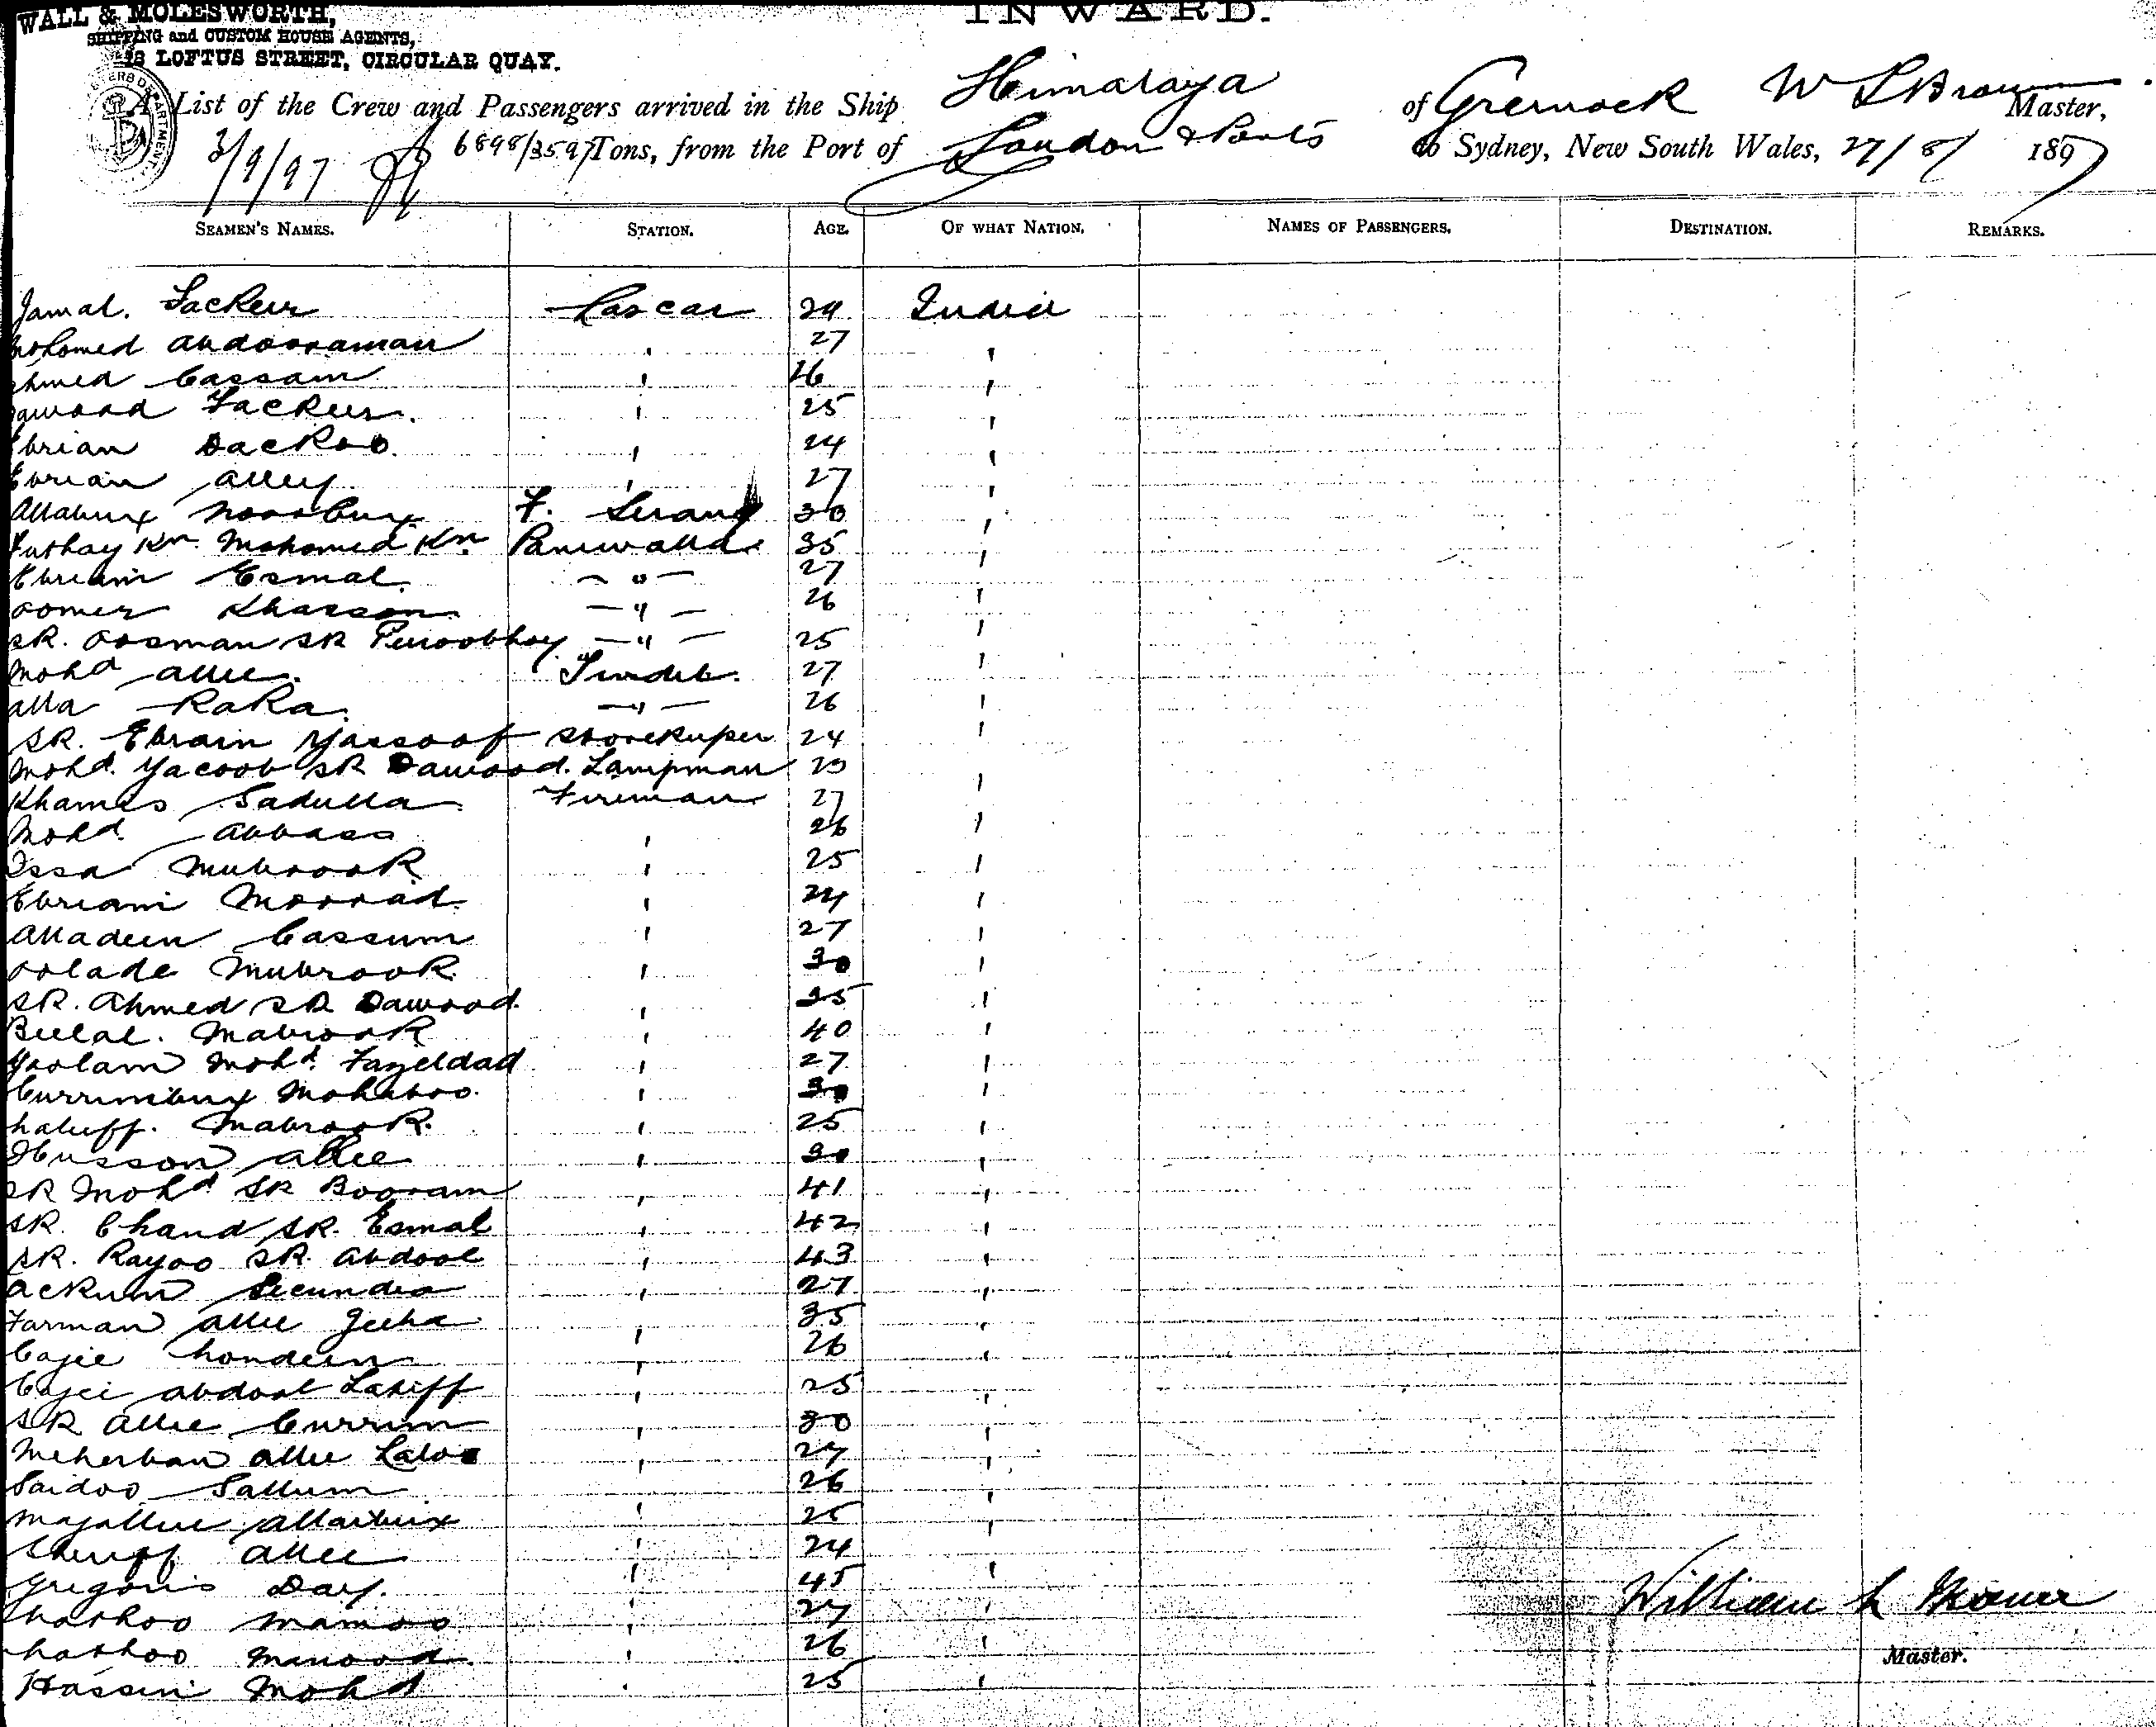 WALL & MOLESWORTH,
SHIPPING and CUSTOM HOUSE AGENTS,
LOFTUS STREET, CIRCULAR QUAY.
INWARD.
A List of the Crew and Passengers arrived in the Ship Himalaya of Greenock W L Brown Master,
3/9/97 6898/3597 Tons, from the Port of London & Ports to Sydney, New South Wales, 27/8/ 1897
SEAMEN'S NAMES. STATION. AGE. OF WHAT NATION. NAMES OF PASSENGERS. DESTINATION. REMARKS.
Jamal. Fackeer Lascar 24 India
Mohomed Abdooraman ' 27 '
Ahmed Cassam ' 26 '
Dawood Fackeer. ' 25 '
Ebrian Dackoo. ' 24 '
Ebrian Alley. ' 27 '
Allabux Noorbux F. Serang 30 '
Futhay Kn. Mohomed Kn Paniwalla 35 '
Ebriam Esmal. — " — 27 '
Oomer Khasson — " — 26 '
SK. Oosman SK Peeroobhoy — " — 25 '
Mohd Allee. Tindel. 27 '
Alla Raka. — " — 26 '
SK. Ebrain Yassoof Storekeeper 24 '
Mohd. Yacoob SK Dawood. Lampman 25
Khames Sadulla Fireman 27 '
Mohd. Abbass ' 26 '
Issa Mubrook ' 25 '
Ebriam Moorad. ' 24 '
Alladeen Cassum ' 27 '
Oolade Mubrook. ' 30 '
SK. Ahmed SK Dawood. ' 35 '
Beelal. Mabrook ' 40 '
Goolam Mohd. Fazeldad ' 27 '
Currimbux Mohaboo. ' 30 '
Mabrook. ' 25 '
Husson Allee ' 30 '
SK Mohd SK Booram ' 41 '
SK. Chand SK. Esmal ' 42 '
SK. Rayoo SK. Abdool ' 43 '
Ackum Secunder ' 27 '
Farman Allee Jeeha ' 35 '
Cajee ' 26 '
Cajee Abdool Latiff ' 25 '
SK Allee Currim ' 30 '
Meherban Allee ' 27 '
Saidoo Sallum ' 26 '
Allabux ' 25 '
Sheriff Allee ' 24 '
Gregorio Day. ' 45 '
Nathoo Mamoo ' 27 '
Nathoo ' 26 '
Hassen Mohd ' 25 '
William L Brown
Master.